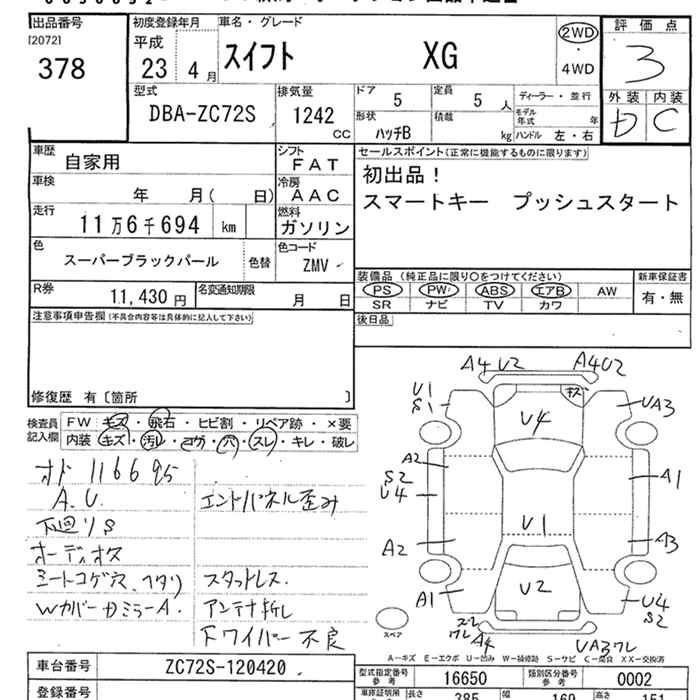 出品番号
[2072]
378
初度登録年月
平成
23年 4月
車名・グレード
スイフト XG
2WD
・
4WD
評価点
3
外装 内装
D C
型式
DBA-ZC72S
排気量
1242
CC
ドア
5
定員
5 人
ディーラー・並行
形状
ハッチB
積載
kg
モデル年式 年
ハンドル 左・右
車歴
自家用
シフト
FAT
車検
年 月( 日)
冷房
AAC
走行
11万6千694 km
燃料
ガソリン
色
スーパーブラックパール
色替
色コード
ZMV
R券
11,430 円
名変通知期限
月 日
セールスポイント(正常に機能するものに限ります)
初出品!
スマートキー プッシュスタート
装備品(純正品に限り○をつけてください)
PS PW ABS エアB AW
SR ナビ TV カワ
新車保証書
有・無
後日品
注意事項申告欄(不具合内容等は具体的に記入して下さい)
修復歴 有〔箇所 〕
検査員記入欄
FW キズ・飛石・ヒビ割・リペア跡・×要
内装 キズ・汚レ・コゲ・穴・スレ・キレ・破レ
オド 116695
A.U.
エンドパネル歪み
下廻りS
オーディオヌケ
シートコゲ穴、ヘタリ
スタットレス.
WカバーDミラーA.
アンテナ折レ
ドワイパー不良
A4 U2
A4U2
U1
S1
キズ
U4
UA3
A2
S2
U4
A1
U1
A2
A3
U2
A1
U4
S2
スペア
スレ
ワレ
A4
UA3ワレ
A-キズ E-エクボ U-凹み W-補修跡 S-サビ C-腐食 XX-交換済
車台番号
ZC72S-120420
型式指定番号
参考
16650
類別区分番号
参考
0002
登録番号
長さ
385
幅
169
高さ
151